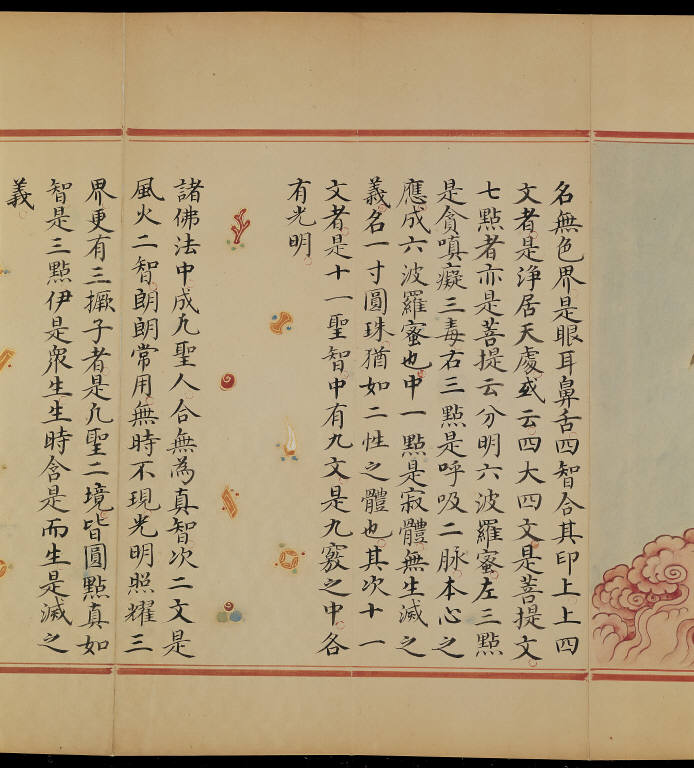 名無色界是眼耳鼻舌四智合其印上上四
文者是淨居天處或云四大四文是菩提文
七點者亦是菩提云分明六波羅蜜左三點
是貪嗔癡三毒右三點是呼吸二脉本心之
應成六波羅蜜也中一點是寂體無生滅之
義名一寸圓珠猶如二性之體也其次十一
文者是十一聖智中有九文是九竅之中各
有光明
諸佛法中成凢聖人合無為真智次二文是
風火二智朗朗常用無時不現光明照耀三
界更有三橛子者是凢聖二境皆圓點真如
智是三點伊是衆生生時含是而生是滅之
義